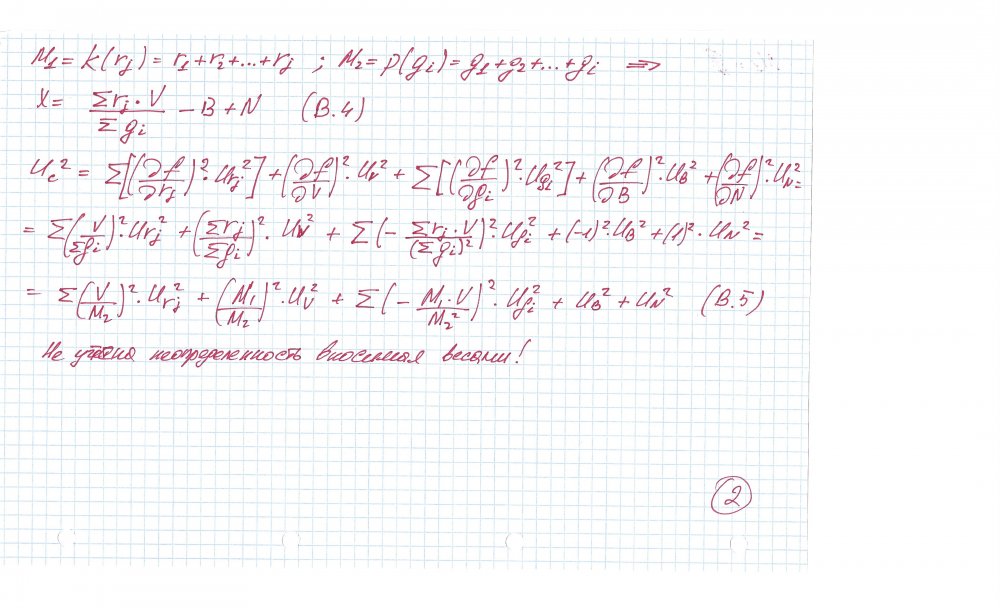 M₁ = k(rj) = r₁+r₂+...+rj ; M₂ = p(gi) = g₁+g₂+...+gi ⇒
X = (Σrj·V)/(Σgi) − B + N (B.4)
Uc² = Σ[(∂f/∂rj)²·Urj²] + (∂f/∂V)²·Uv² + Σ[(∂f/∂gi)²·Ugi²] + (∂f/∂B)²·UB² + (∂f/∂N)²·UN² =
= Σ(V/Σgi)²·Urj² + (Σrj/Σgi)²·Uv² + Σ(−(Σrj·V)/(Σgi)²)²·Ugi² + (-1)²·UB² + (1)²·UN² =
= Σ(V/M₂)²·Urj² + (M₁/M₂)²·Uv² + Σ(−(M₁·V)/M₂²)²·Ugi² + UB² + UN² (B.5)
Не учтена неопределенность вносимая весами!
2